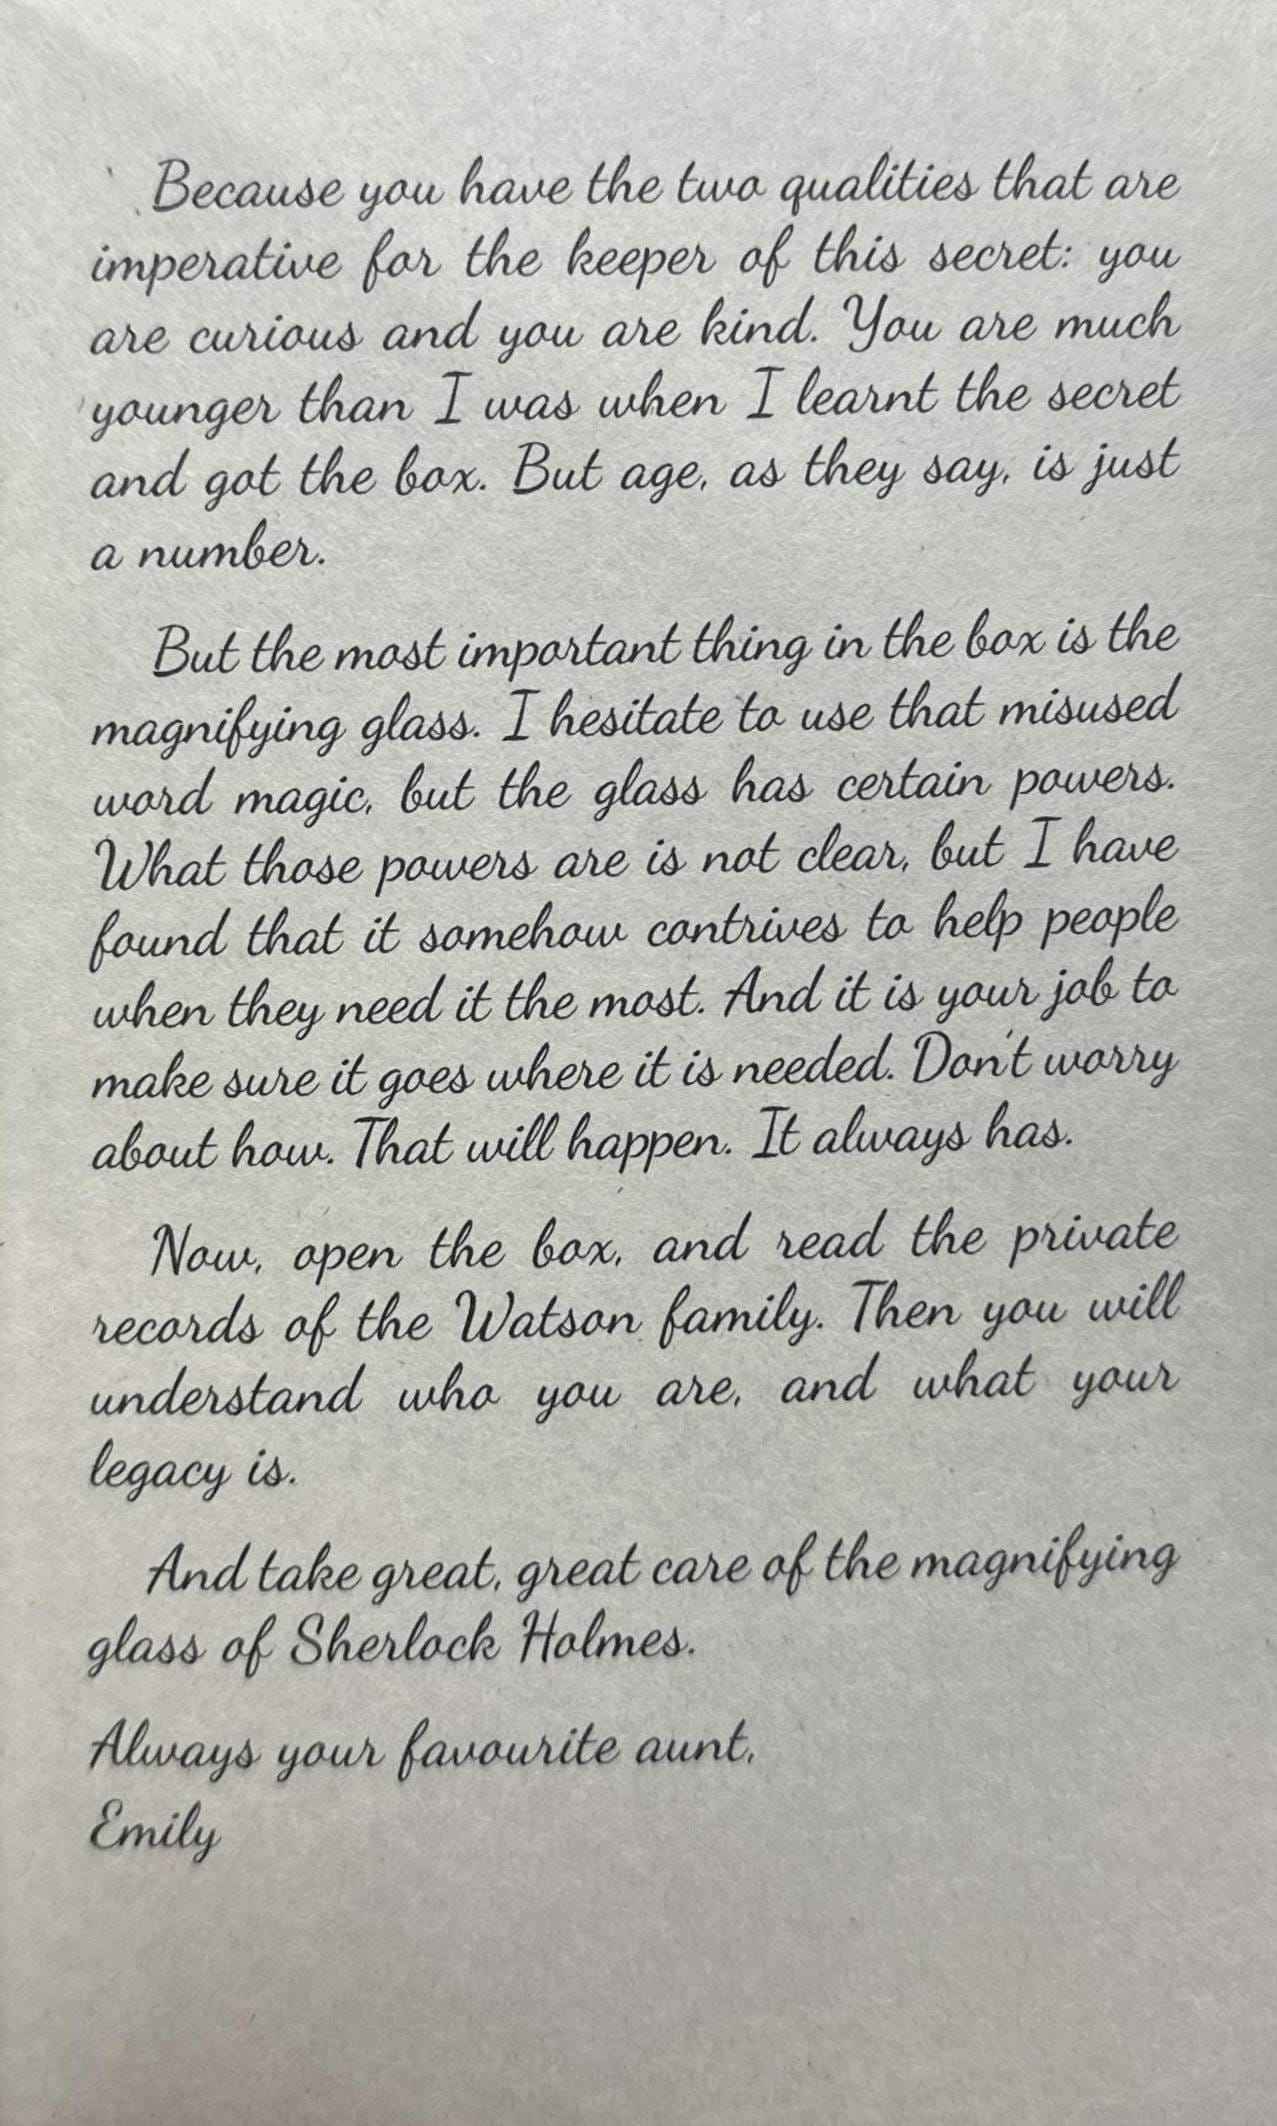 Because you have the two qualities that are
imperative for the keeper of this secret: you
are curious and you are kind. You are much
younger than I was when I learnt the secret
and got the box. But age, as they say, is just
a number.
But the most important thing in the box is the
magnifying glass. I hesitate to use that misused
word magic, but the glass has certain powers.
What those powers are is not clear, but I have
found that it somehow contrives to help people
when they need it the most. And it is your job to
make sure it goes where it is needed. Don't worry
about how. That will happen. It always has.
Now, open the box, and read the private
records of the Watson family. Then you will
understand who you are, and what your
legacy is.
And take great, great care of the magnifying
glass of Sherlock Holmes.
Always your favourite aunt,
Emily